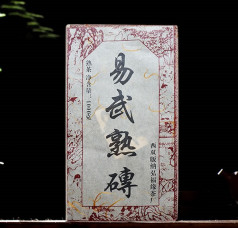 易武熟磚
熟茶 净含量:1000克
西双版纳弘福缘茶厂